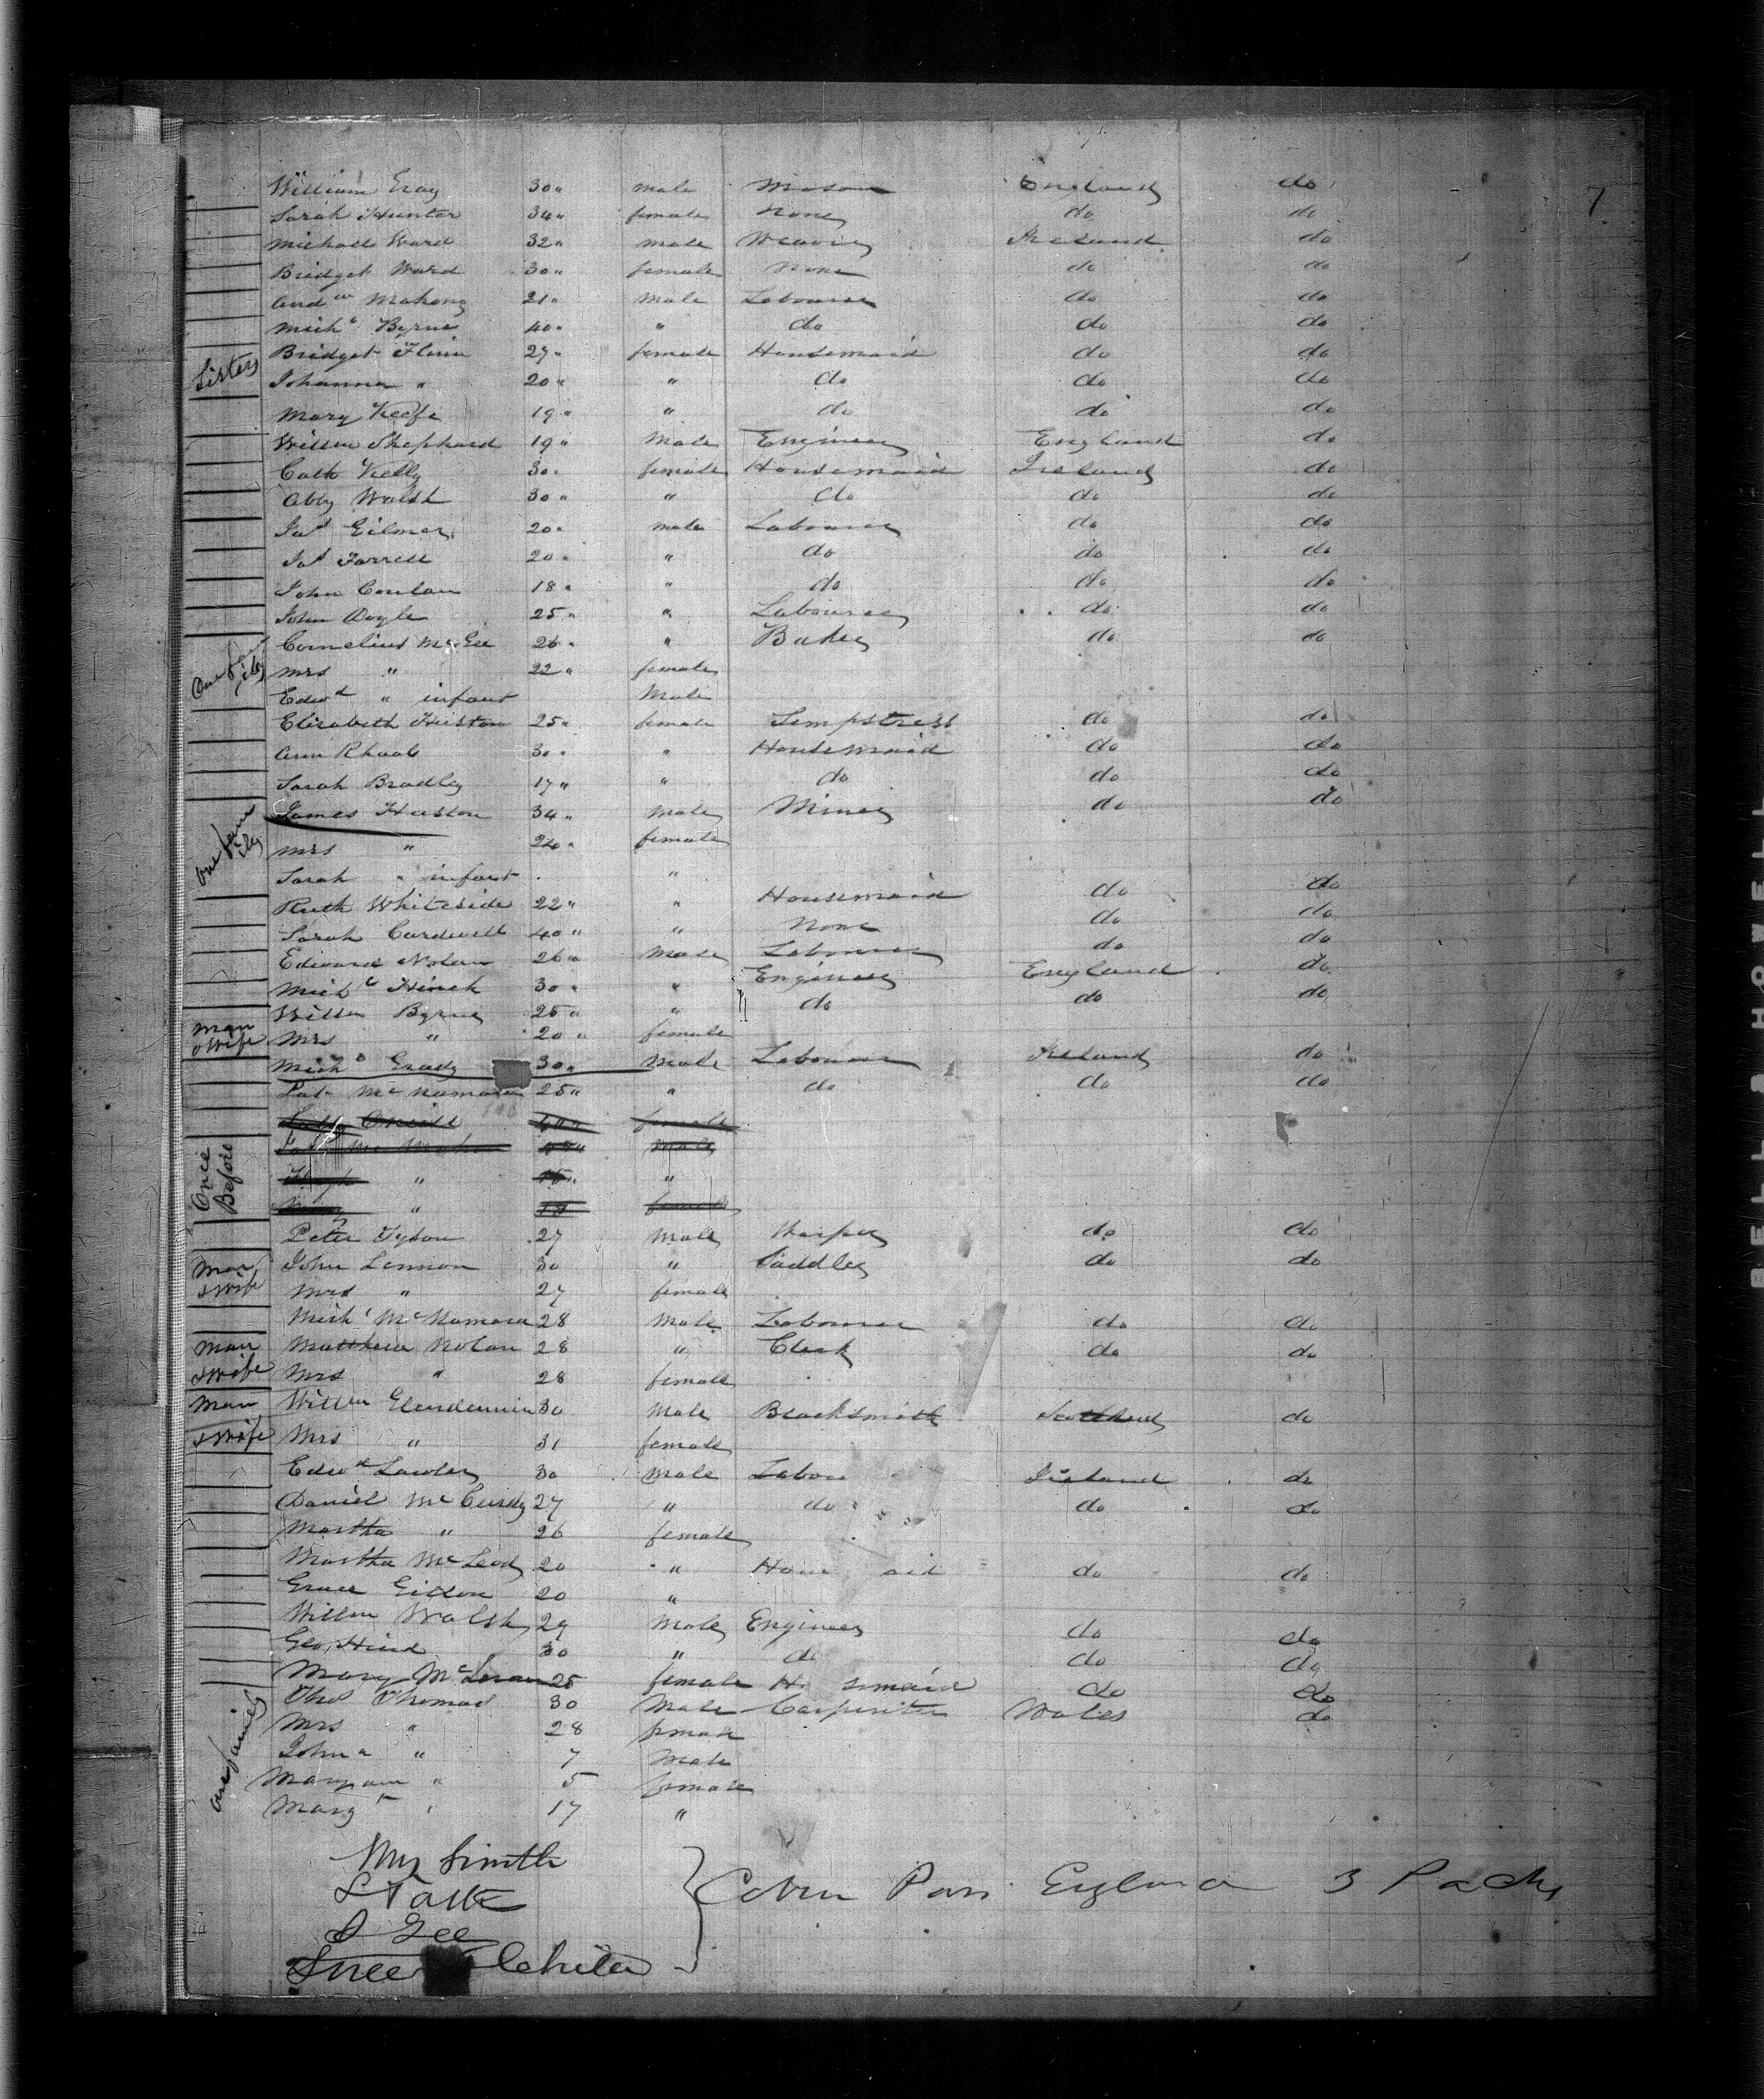 7
William Gray 30 " male Mason England do
Sarah Hunter 34 " female None do do
Michall Ward 32 " male Weaver Ireland do
Bridget Ward 30 " female None do do
Andw Mahony 21 " male Labourer do do
Michl Byrne 40 " " do do do
Sisters Bridget Flinn 27 " female Housemaid do do
Johanna " 20 " " do do do
Mary Keefe 19 " " do do do
Willm Shephard 19 " Male Engineer England do
Cath Kelly 30 " female Housemaid Ireland do
Abby Walsh 30 " " do do do
Jas Gilmer 20 " male Labourer do do
Jas Farrell 20 " " do do do
John Conlan 18 " " do do do
John Doyle 25 " " Labourer do do
One family Cornelius McGee 26 " " Baker do do
Mrs " 22 " female
Edwd " infant Male
Elizabeth Huston 25 " female Sempstress do do
Ann 30 " " Housemaid do do
Sarah Bradley 17 " " do do do
One family James Huston 34 " Male Miner do do
Mrs " 24 " female
Sarah " infant "
Ruth Whiteside 22 " " Housemaid do do
Sarah Cardwell 40 " " None do do
Edward Nolan 26 " Male Labourer do do
Michl Hinch 30 " " Engineer England do
Man & Wife Willm Byrne 25 " " do do do
Mrs " 20 " female
Michl Grady 30 " Male Labourer Ireland do
Pat McNamara 25 " " do do do
ONeill female
Once Before Mc Male
Hugh " "
" female
Peter Tyson 27 Male do do
Man & Wife John Lennon 30 " Saddler do do
Mrs " 27 female
Michl McNamara 28 Male Labourer do do
Man & Wife Matthew Nolan 28 " Clerk do do
Mrs " 28 female
Man & Wife Willm Glendennin 30 Male Blacksmith Scotland do
Mrs " 31 female
Edwd Lawler 30 Male Labou Ireland do
Daniel McCurdy 27 " do do do
Martha " 26 female
Martha McLeod 20 " House aid do do
Grace 20 "
Willm Walsh 29 Male Engineer do do
Geo Hind 30 " do do do
Mary 25 female H semaid do do
One family Thos Thomas 30 Male Carpenter Wales do
Mrs " 28 female
John " 7 Male
Maryann " 5 female
Margt " 17 "
Smith
L Talk
Gee
} Cabin Pass England 3 Packs